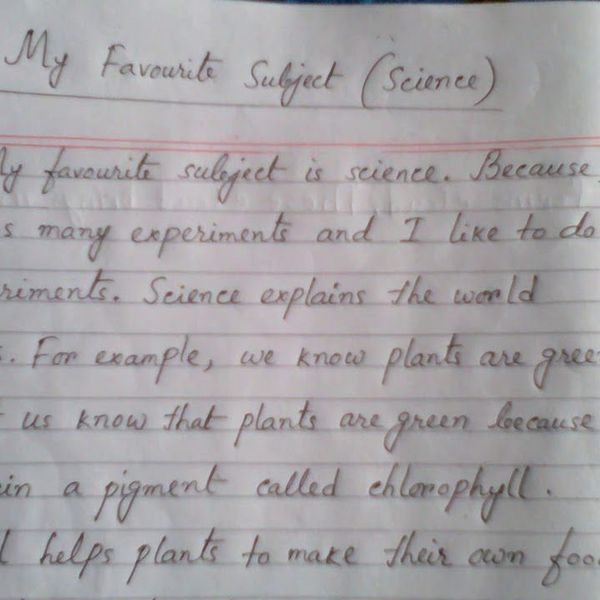 My Favourite Subject (Science)
My favourite subject is science. Because
s many experiments and I like to do
riments. Science explains the world
. For example, we know plants are gree
us know that plants are green because
in a pigment called chlorophyll.
l helps plants to make their own foo